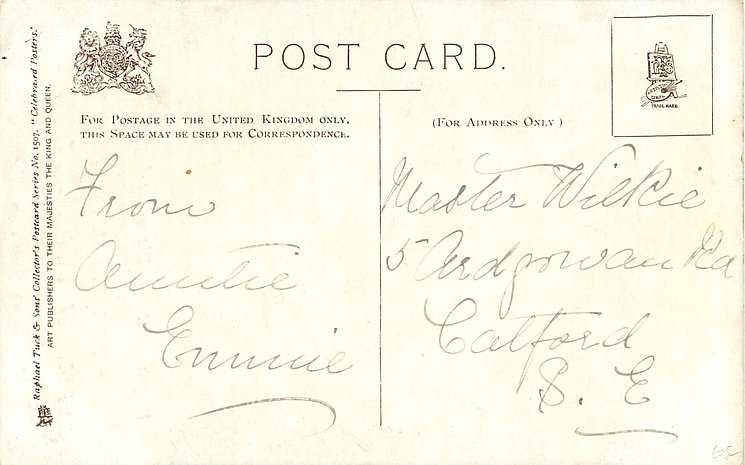 POST CARD.
FOR POSTAGE IN THE UNITED KINGDOM ONLY,
THIS SPACE MAY BE USED FOR CORRESPONDENCE.
(FOR ADDRESS ONLY)
TRADE MARK
From
Auntie
Emmie
Master Wilkie
5 Ardgowan Rd
Catford
S. E
Raphael Tuck & Sons' Collector's Postcard Series No. 1507, "Celebrated Posters."
ART PUBLISHERS TO THEIR MAJESTIES THE KING AND QUEEN.